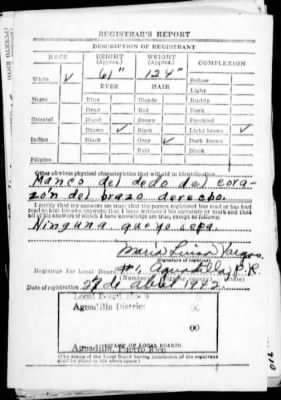 REGISTRAR'S REPORT
DESCRIPTION OF REGISTRANT
RACE HEIGHT (Approx.) WEIGHT (Approx.) COMPLEXION
White ✓ 61" 124" Sallow
EYES HAIR Light
Negro Blue Blonde Ruddy
Gray Red Dark
Oriental Hazel Brown Freckled
Brown ✓ Black Light brown ✓
Indian Black Gray ✓ Dark brown
Bald Black
Filipino
Other obvious physical characteristics that will aid in identification
Manco del dedo del cora-
zón del brazo derecho.
I certify that my answers are true; that the person registered has read or has had
read to him his own answers; that I have witnessed his signature or mark and that
all of his answers of which I have knowledge are true, except as follows:
Ninguna que yo sepa.
Maria Luisa Vargas
(Signature of registrar)
Registrar for Local Board #1, Aguadilla, P.R.
Date of registration 27 de Abril 1942.
Local Board No. 9
Aguadilla District
(STAMP OF LOCAL BOARD)
Aguadilla, Puerto Rico
(The stamp of the Local Board having jurisdiction of the registrant
shall be placed in the above space.)